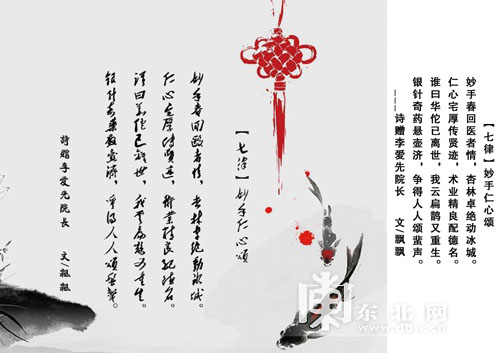 【七律】妙手仁心颂
妙手春回医者情，杏林卓绝动冰城。
仁心宅厚传贤迹，术业精良配德名。
谁曰华佗已离世，我云扁鹊又重生。
银针奇药悬壶济，争得人人颂蜚声。
———诗赠李爱先院长　文\飘飘
【七律】妙手仁心颂
妙手春回医者情，杏林卓绝动冰城。
仁心宅厚传贤迹，术业精良配德名。
谁曰华佗已离世，我云扁鹊又重生。
银针奇药悬壶济，争得人人颂蜚声。
诗赠李爱先院长　文\飘飘
东北网
www.dbw.cn